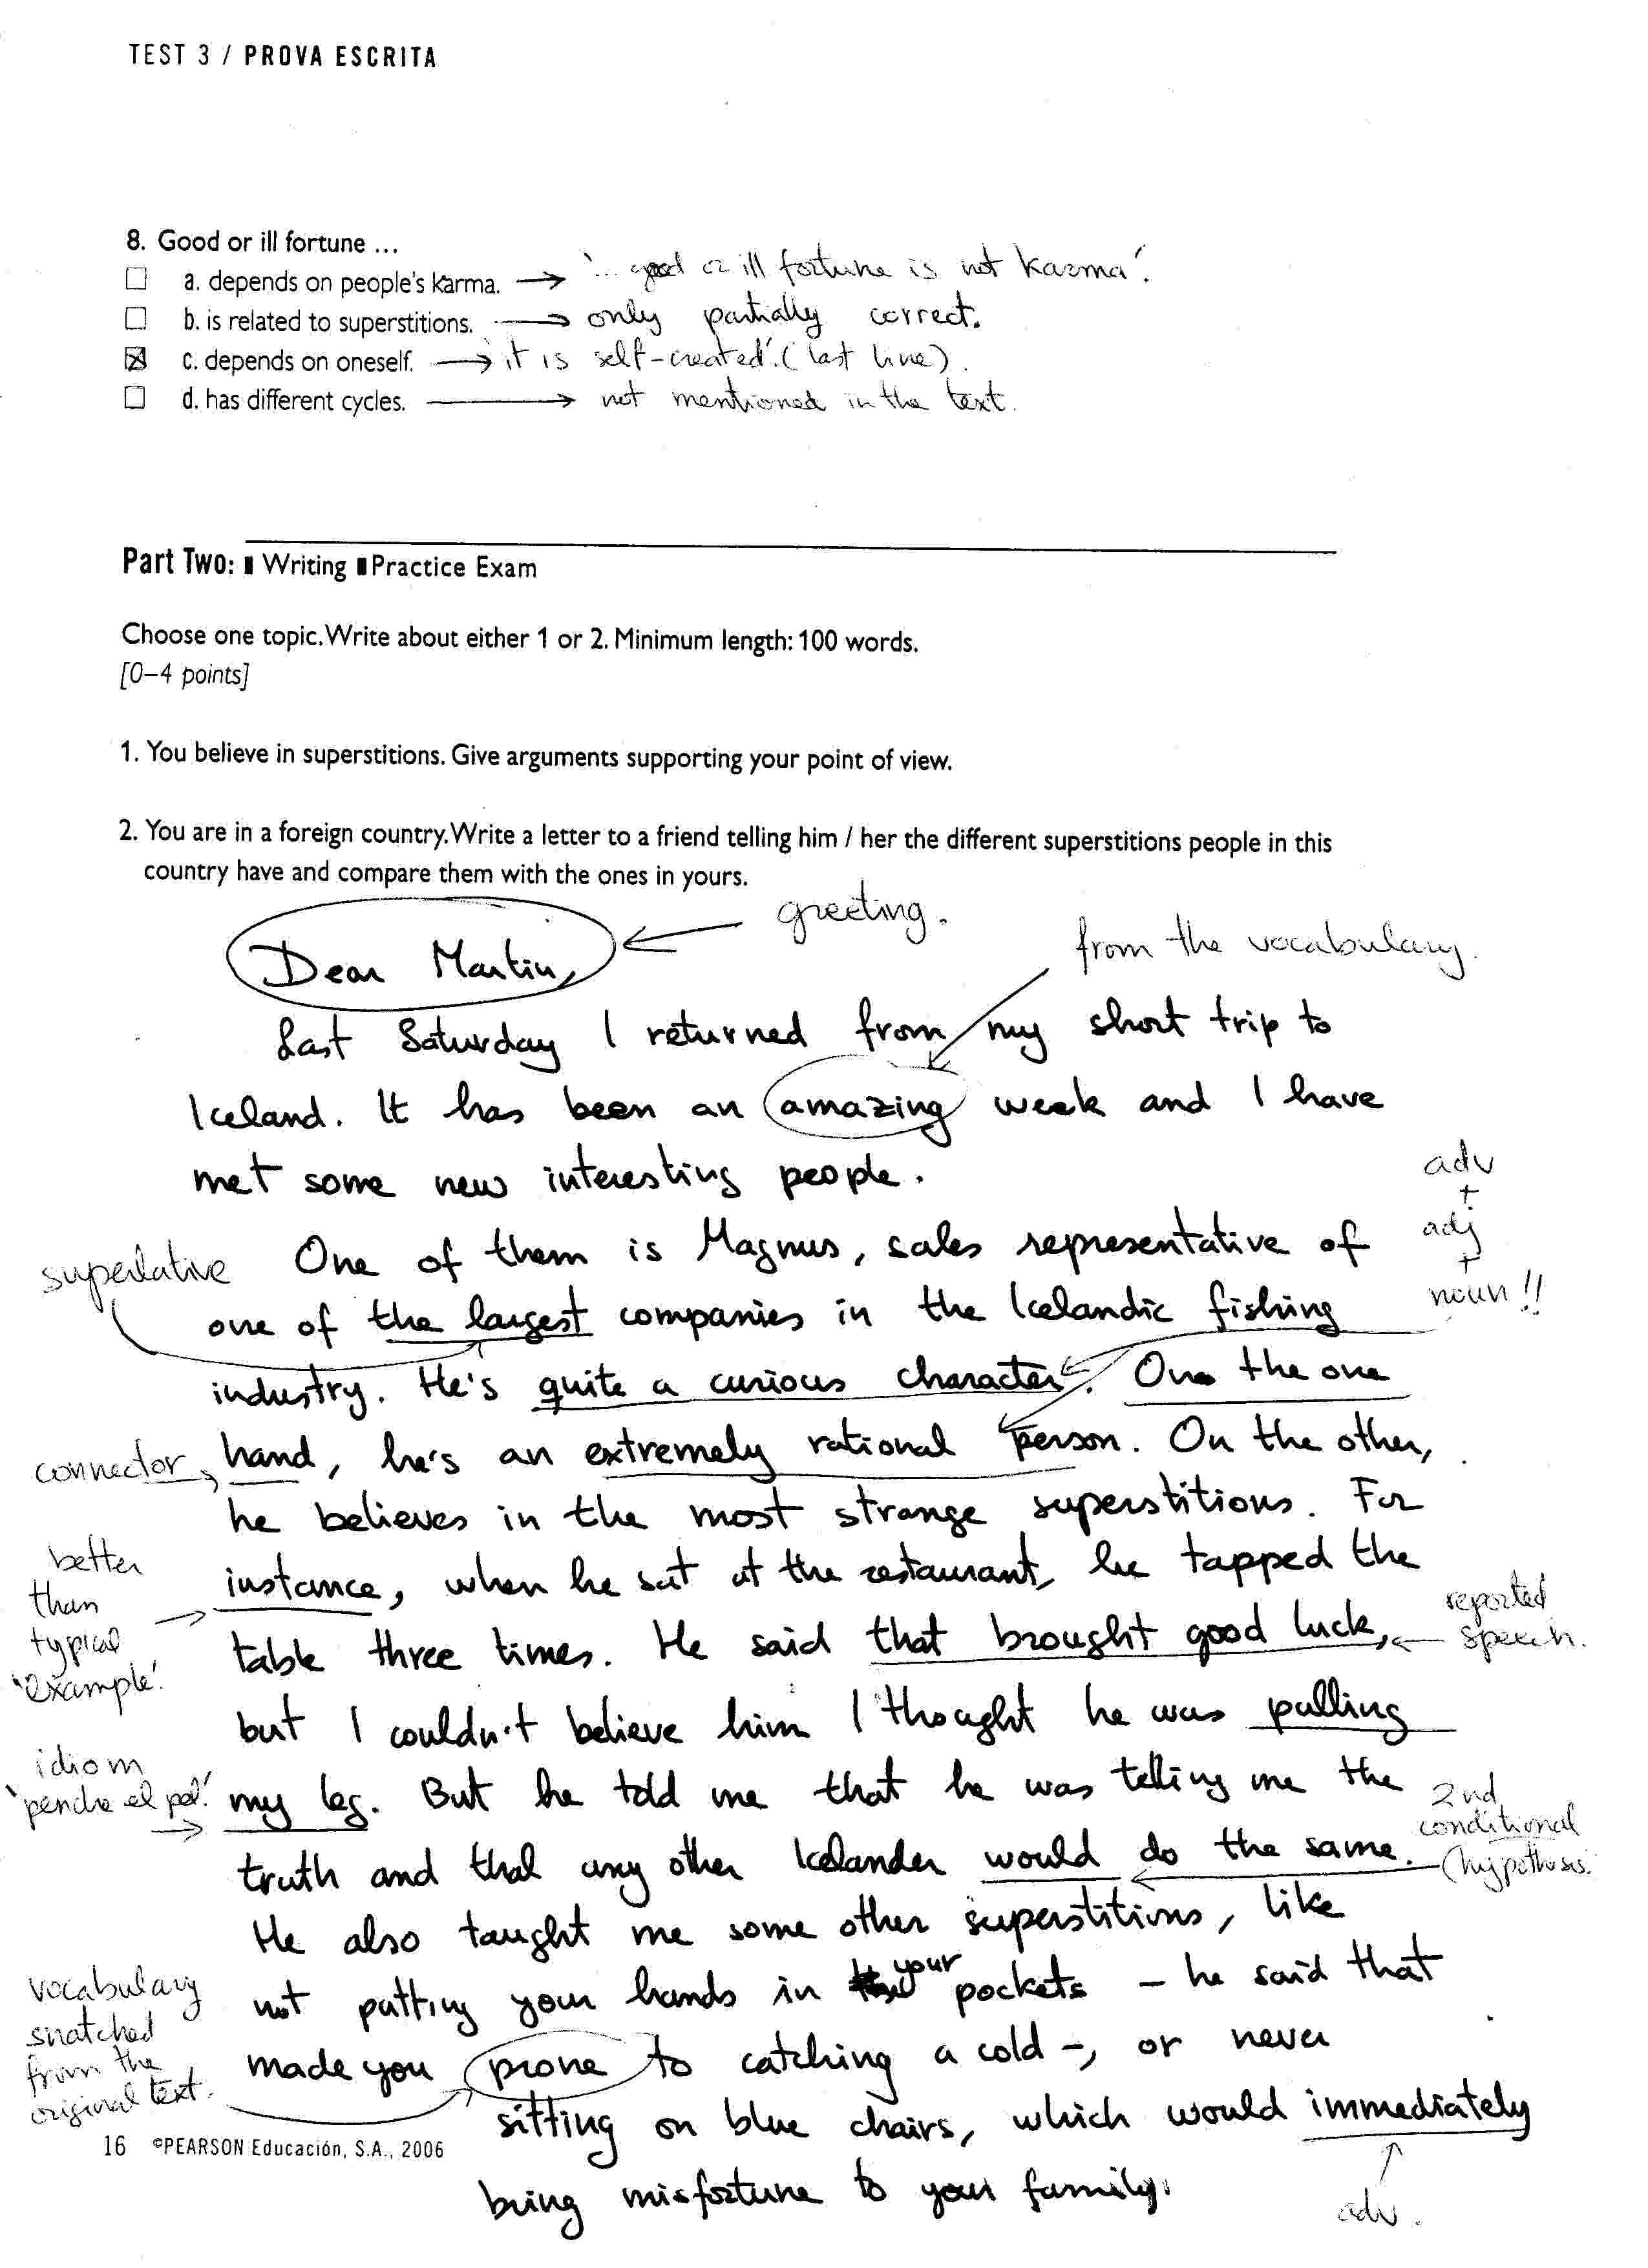 TEST 3 / PROVA ESCRITA
8. Good or ill fortune ...
a. depends on people's karma. → '... good or ill fortune is not karma'.
b. is related to superstitions. → only partially correct.
c. depends on oneself. → 'it is self-created'. (last line).
d. has different cycles. → not mentioned in the text.
Part Two: Writing Practice Exam
Choose one topic. Write about either 1 or 2. Minimum length: 100 words.
[0–4 points]
1. You believe in superstitions. Give arguments supporting your point of view.
2. You are in a foreign country. Write a letter to a friend telling him / her the different superstitions people in this
country have and compare them with the ones in yours.
greeting.
from the vocabulary.
Dear Martin,
Last Saturday I returned from my short trip to
Iceland. It has been an amazing week and I have
met some new interesting people.
adv
+
adj
+
noun!!
superlative
One of them is Magnus, sales representative of
one of the largest companies in the Icelandic fishing
industry. He's quite a curious character. On the one
connector
hand, he's an extremely rational person. On the other,
he believes in the most strange superstitions. For
better
than
typical
'example'.
instance, when he sat at the restaurant, he tapped the
table three times. He said that brought good luck,
reported
speech.
but I couldn't believe him I thought he was pulling
idiom
'pendre el pèl'.
my leg. But he told me that he was telling me the
2nd
conditional
(hypothesis.
truth and that any other Icelander would do the same.
He also taught me some other superstitions, like
vocabulary
snatched
from the
original text.
not putting your hands in your pockets – he said that
made you prone to catching a cold –, or never
sitting on blue chairs, which would immediately
adv.
bring misfortune to your family.
16 ©PEARSON Educación, S.A., 2006